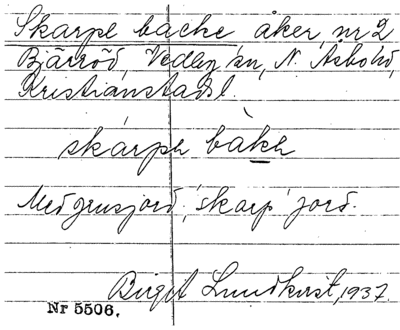 Skarpe backe åker, nr 2
Bjärröd, Vedby sn, N. Åsbo hd,
Kristianstads l.
skárpe bàke
Med grusjord, 'skarp' jord.
Birgit Lundkvist, 1937.
Nr 5506.